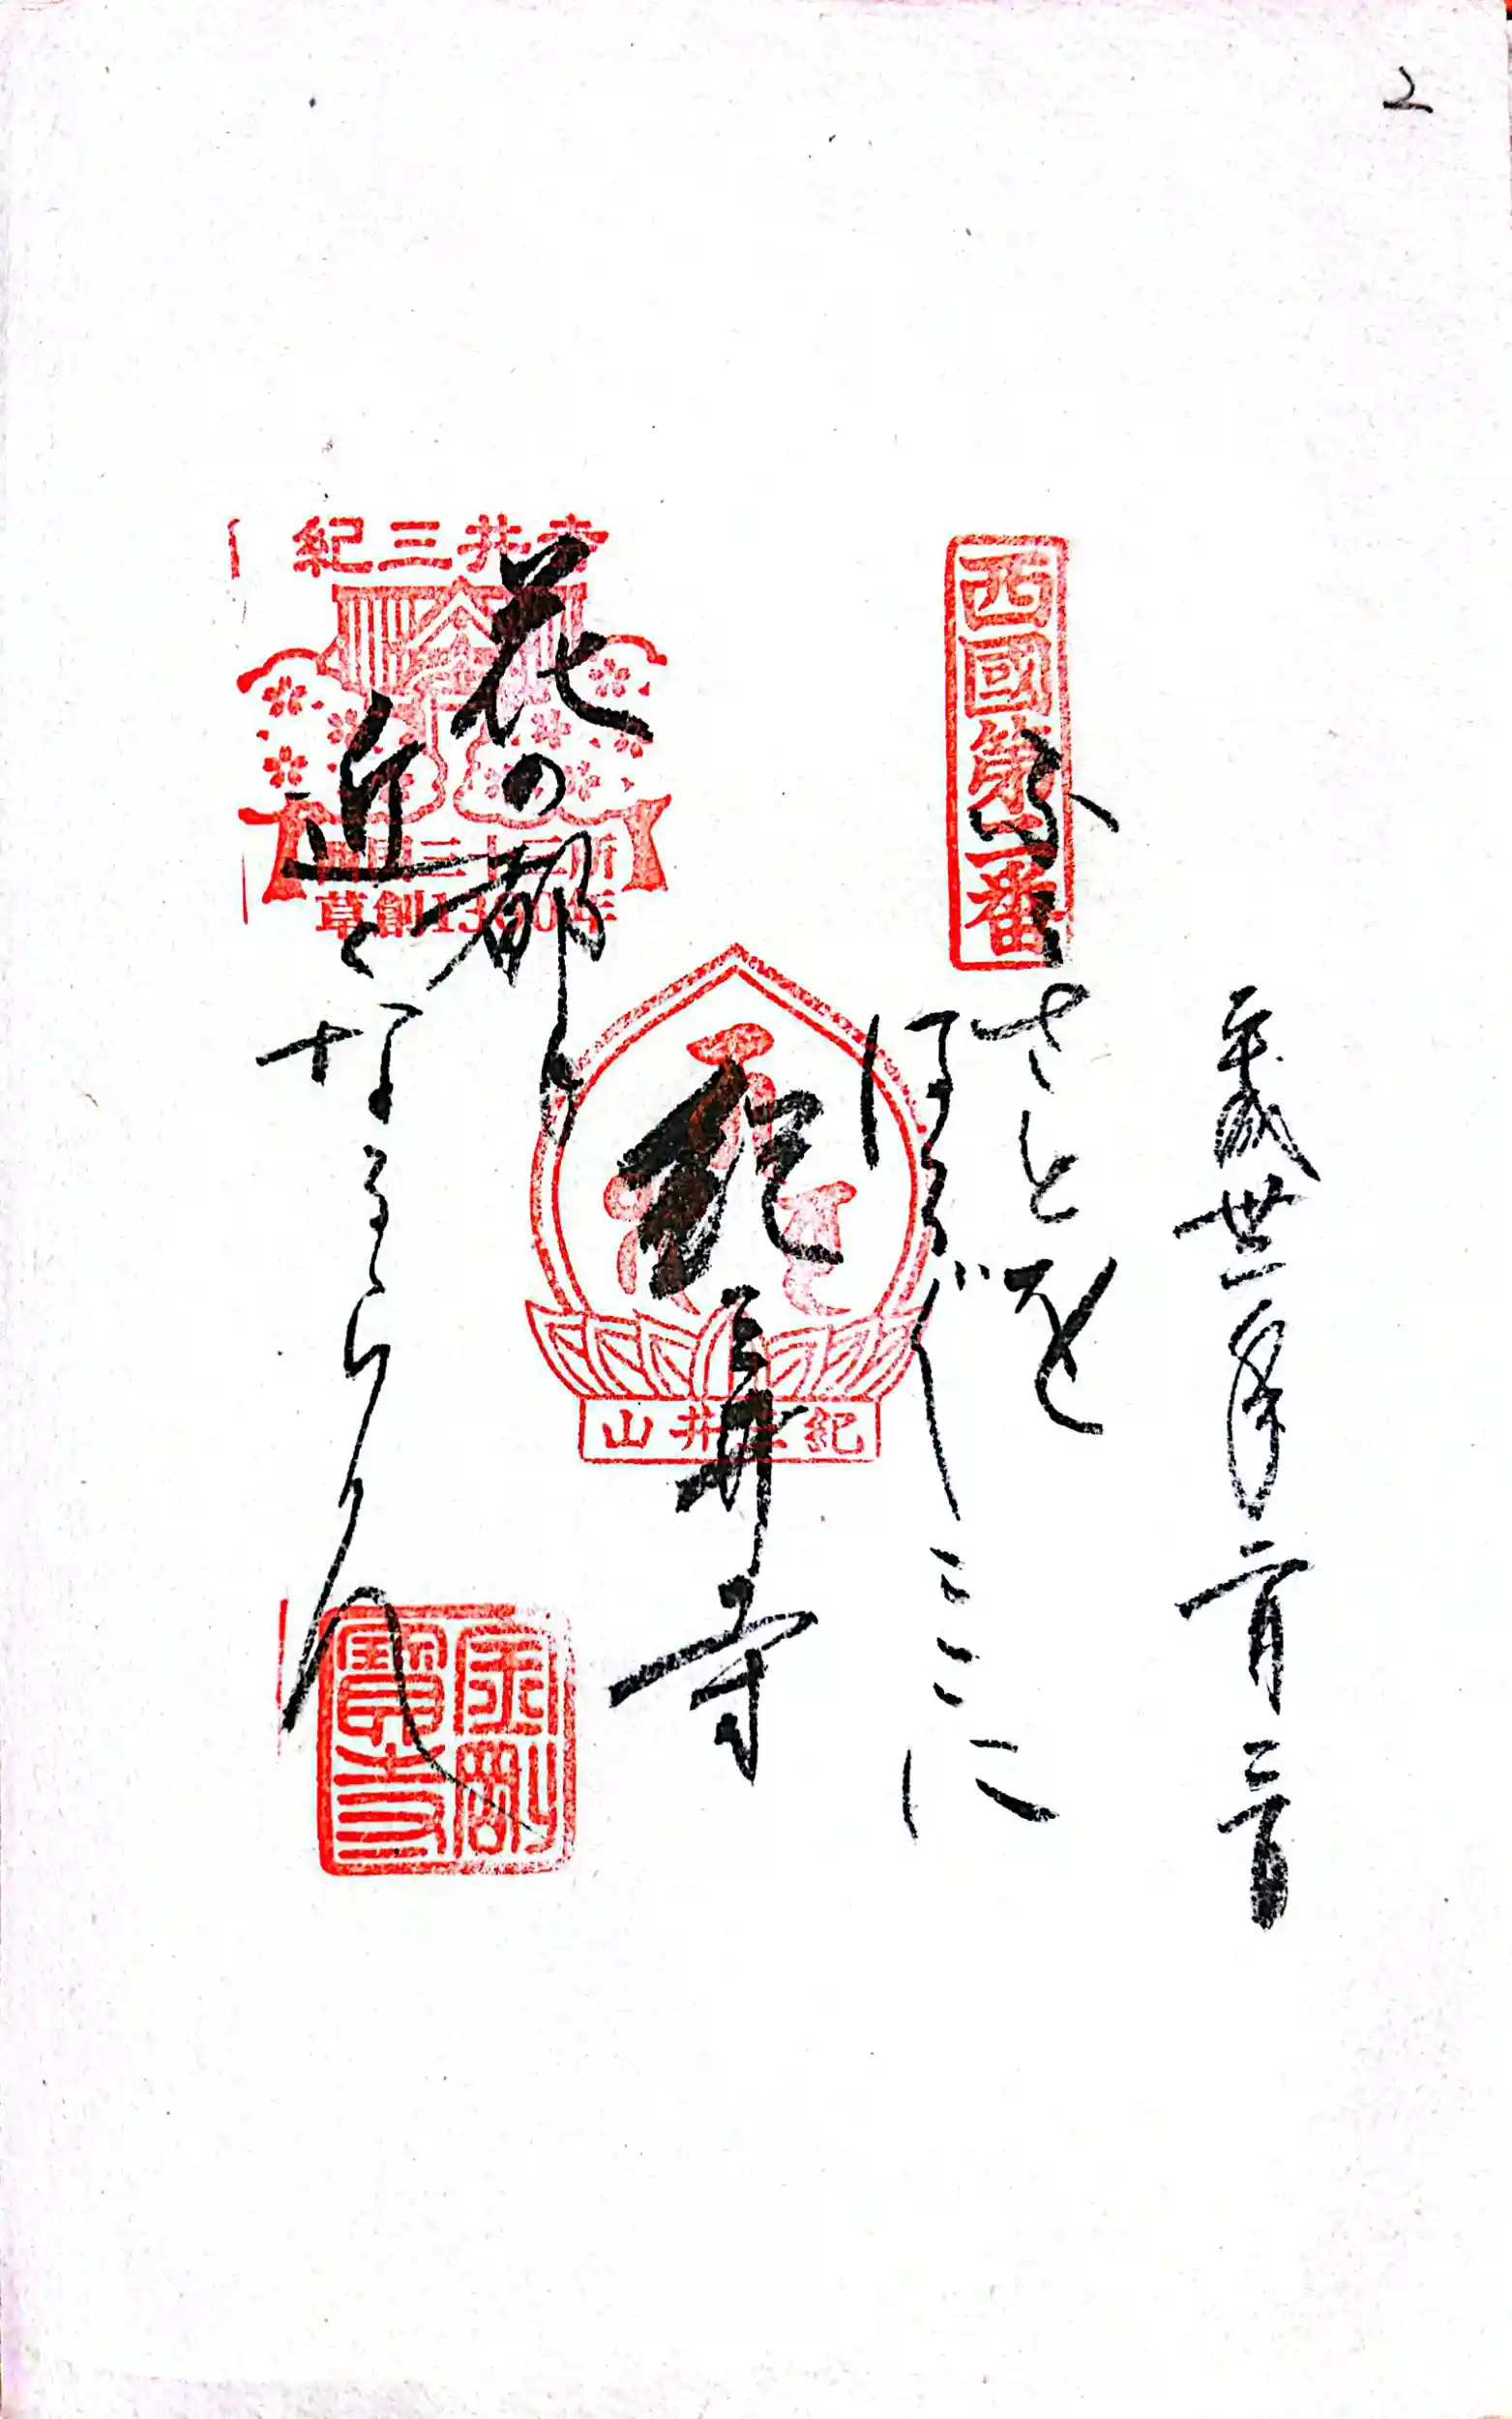 2
平成丗一年二月三日
西國第二番
ふるさとを
はる〲ここに
紀三井寺
花の都も
近くなるらん
紀三井寺
西国三十三所
草創1300年
紀三井山
金剛寶寺